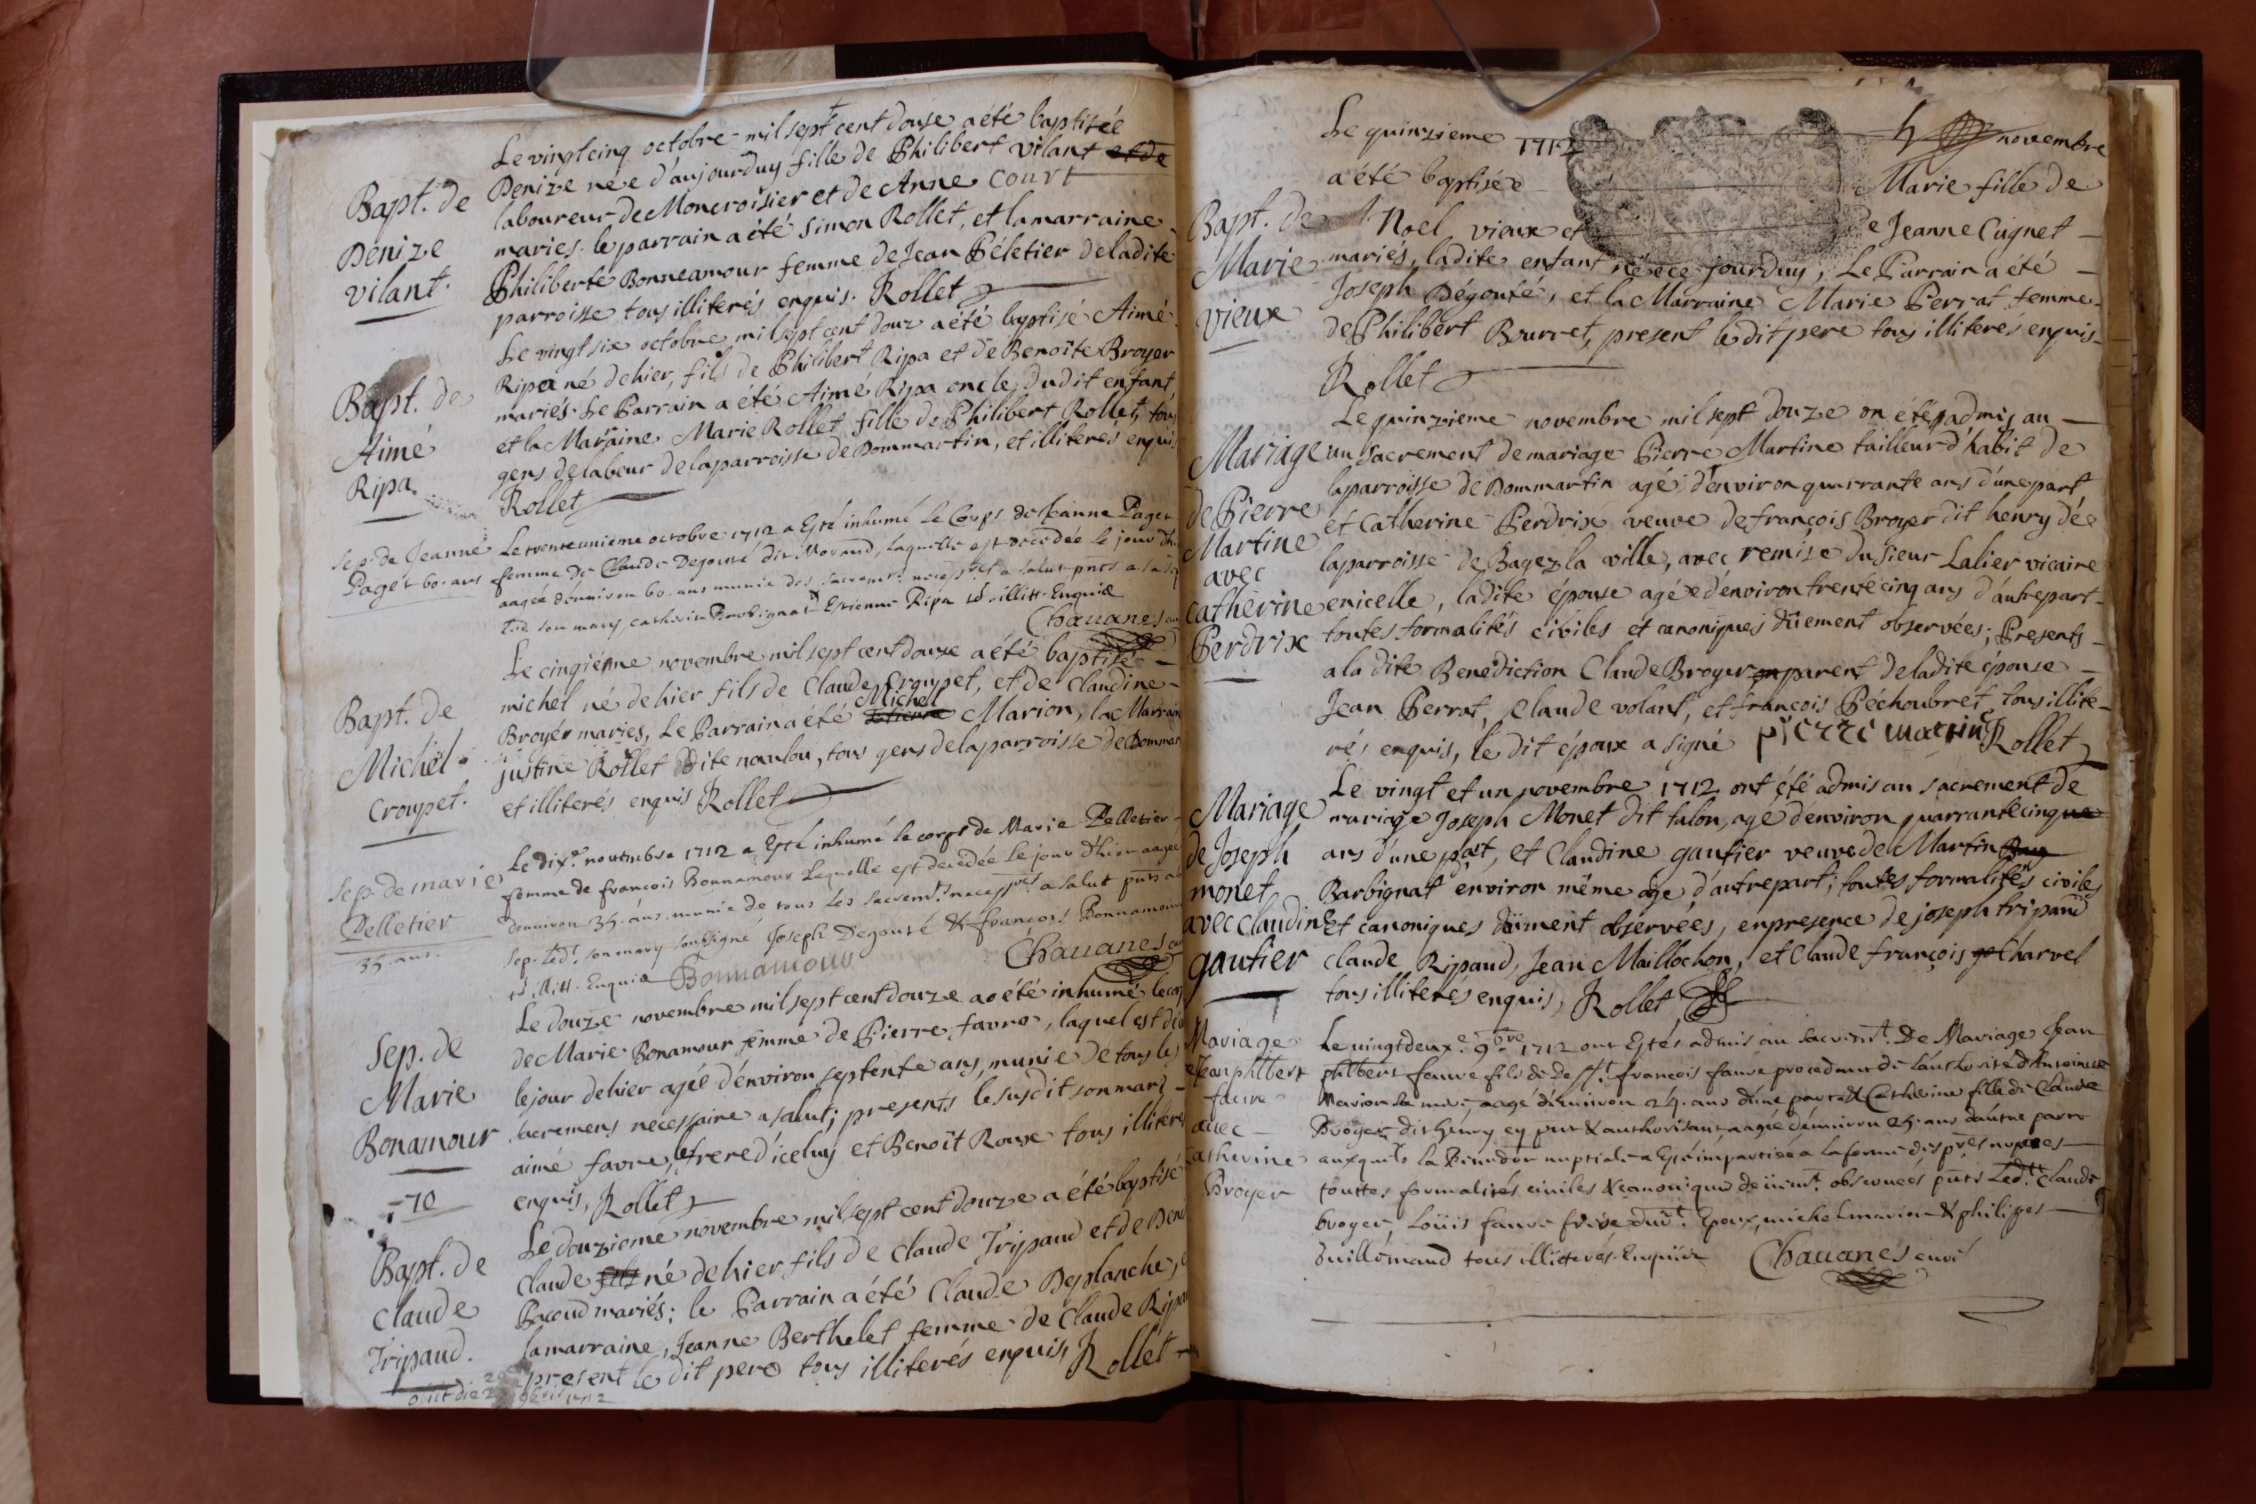 Le vingt cinq octobre mil sept cent douse a été baptisée
Bapt. de Denize née d'aujourduy fille de Philibert vilant et de
Denize laboureur de Moncroisier et de Anne Court
vilant. mariés. le parrain a été Simon Rollet, et la marraine
Philiberte Bonneamour femme de Jean Péletier de la dite
parroisse tous illiterés enquis. Rollet
Le vingt six octobre mil sept cent douz a été baptisé Aimé
Bapt. de Ripa né de hier, fils de Philibert Ripa et de Benoîte Broyer
Aimé mariés. Le Parrain a été Aimé Ripa oncle dudit enfant
Ripa. et la Marraine Marie Rollet fille de Philibert Rollet, tous
gens de labeur de la parroisse de Dommartin, et illiterés enquis
Rollet
Sep. de Jeanne Le trente unieme octobre 1712 a Esté inhumé Le Corps de Jeanne Paget
Paget 60. ans femme de Claude Degouté dit Morand, laquelle est decedée le jour
aagée d'environ 60. ans munie des sacrem.ts necess.res a salut pnts a sa
son mary, Estienne Ripa illitt. Enquis
Chauanes
Le cinqiéme novembre mil sept cent douze a été baptisé
Bapt. de michel né de hier fils de Claude Croupet, et de Claudine
Michel Broyer mariés, Le Parrain a été Estienne Michel Marion, la Marraine
Croupet. justine Rollet dite nanlou, tous gens de la parroisse de Dommar
et illiterés enquis Rollet
Sep. de marie Le dix.e nouembre 1712 a Esté inhumé le corps de Marie Pelletier
Pelletier femme de françois Bonnamour Laquelle est decedée Le jour d'hier aagée
35. ans. d'enuiron 35. ans munie de tous Les sacrem.ts necess.res a salut pnts a
sep. Led.t son mary soubsigné Joseph Degouté & françois Bonnamour
illitt. Enquis Bonnamour Chauanes
Le douze novembre mil sept cent douze a été inhumé le cor
Sep. de de Marie Bonamour femme de Pierre favre, laquel est
Marie le jour de hier agée d'environ septente ans, munie de tous les
Bonamour sacremens necessaire a salut; presents le susdit son mari
70 aimé favre, le frere d'iceluy et Benoît Roux tous illiterés
enquis, Rollet
Le douzieme novembre mil sept cent douze a été baptisé
Bapt. de Claude né de hier fils de Claude Tripaud et de Ben
Claude Pacoud mariés; le Parrain a été Claude Deplanche,
Tripaud. la marraine, Jeanne Berthelet femme de Claude Ripa
present le dit pere tous illiterés enquis, Rollet
Le quinzieme 1712 novembre
a été baptisée Marie fille de
Bapt. de Noel vieux et de Jeanne Cugnet
Marie mariés, ladite enfant née ce jourduy, Le Parrain a été
vieux Joseph Dégouté, et la Marraine Marie Perrat femme
de Philibert Burret, present le dit pere tous illiterés enquis
Rollet
Le quinzieme novembre mil sept douze on été admis au
Mariage un sacrement de mariage Pierre Martine tailleur d'habit de
la parroisse de Dommartin agé d'environ quarrante ans d'une part
de Pierre et Catherine Perdrix veuve de françois Broyer dit henry dée
Martine la parroisse de Bagez la ville, avec remise du sieur Lalier vicaire
avec
Catherine enicelle, ladite épouse agée d'environ trente cinq ans d'autre part
Perdrix toutes formalités civiles et canoniques dûement observées; Presents
a la dite Benediction Claude Broyer parent de ladite épouse
Jean Perrat, Claude volant, et françois Péchoubret, tous illite-
rés enquis, le dit époux a signé pierre martin Rollet
Le vingt et un novembre 1712 ont été admis au sacrement de
Mariage mariage Joseph Monet dit talon, agé d'environ quarrante cinq
de Joseph ans d'une part, et Claudine gautier veuve de Martin
monet Barbignat environ même age, d'autre part; toutes formalités civiles
avec Claudine et canoniques dûment observées, en presence de joseph tripaud
gautier Claude Ripaud, Jean Maillochon, et Claude françois Charvel
tous illiterés enquis, Rollet
Mariage Le vingt deux.e 9bre 1712 ont Estés admis au sacrem.t De Mariage Jean
Jean philbert philbert faure fils de De ff.t françois faure procedant de L'authorité d'Antoinette
faure Marion sa mere, aagé d'enuiron 24. ans d'une part & Catherine fille de Claude
auec Broyer dit henry cy pnt & authorisant aagée d'enuiron 25. ans d'autre part
Catherine auxquels la Benedon nuptiale a Esté impartie a la forme des
Broyer touttes formalités ciuiles & canonique deüem.t obseruées pnts Led.t Claude
broyer, Loüis faure frere dud.t Epoux, michel marion & philipes
Guillemaud tous illiterés. Enquis Chauanes curé